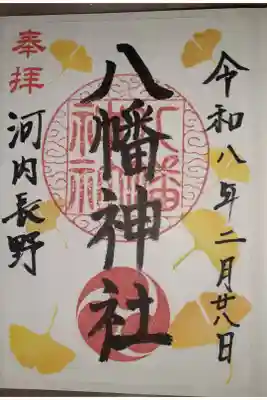 令和八年二月廿八日
八幡神社
奉拝
河内長野
八幡
神社